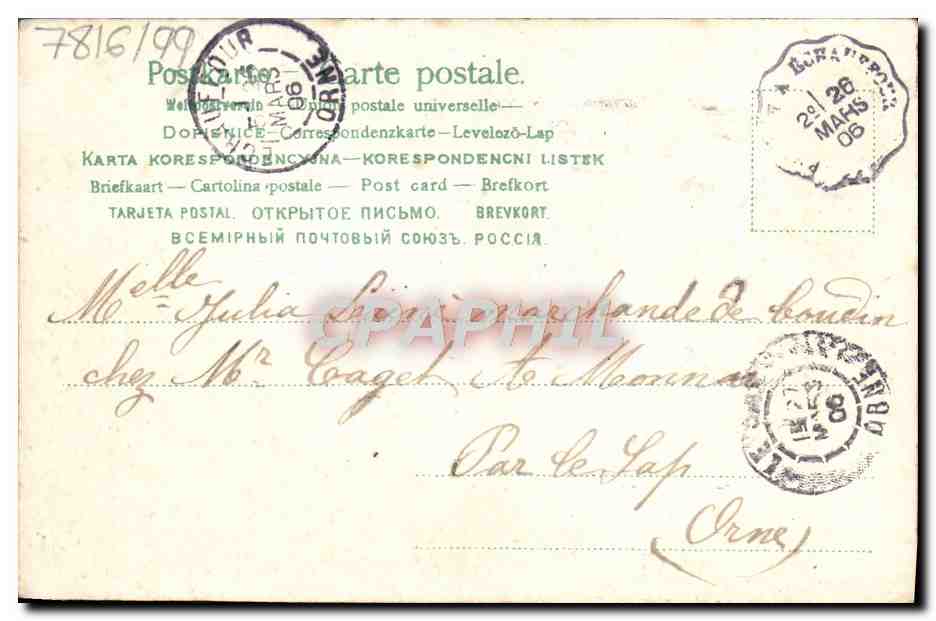 7816/99
Postkarte — Carte postale.
Weltpostverein — Union postale universelle —
DOPISNICE — Correspondenzkarte — Levelezö-Lap
KARTA KORESPONDENCYJNA — KORESPONDENCNI LISTEK
Briefkaart — Cartolina postale — Post card — Brefkort
TARJETA POSTAL. ОТКРЫТОЕ ПИСЬМО. BREVKORT.
ВСЕМІРНЫЙ ПОЧТОВЫЙ СОЮЗЪ. РОССІЯ.
ECHAUFFOUR
MARS
06
ORNE
ECHAUFFOUR
26
MARS
06
Melle Julia marchande de boudin
chez Mr
Par le Sap
(Orne)
CPAPHIL
LE SAP
27
MARS
06
ORNE